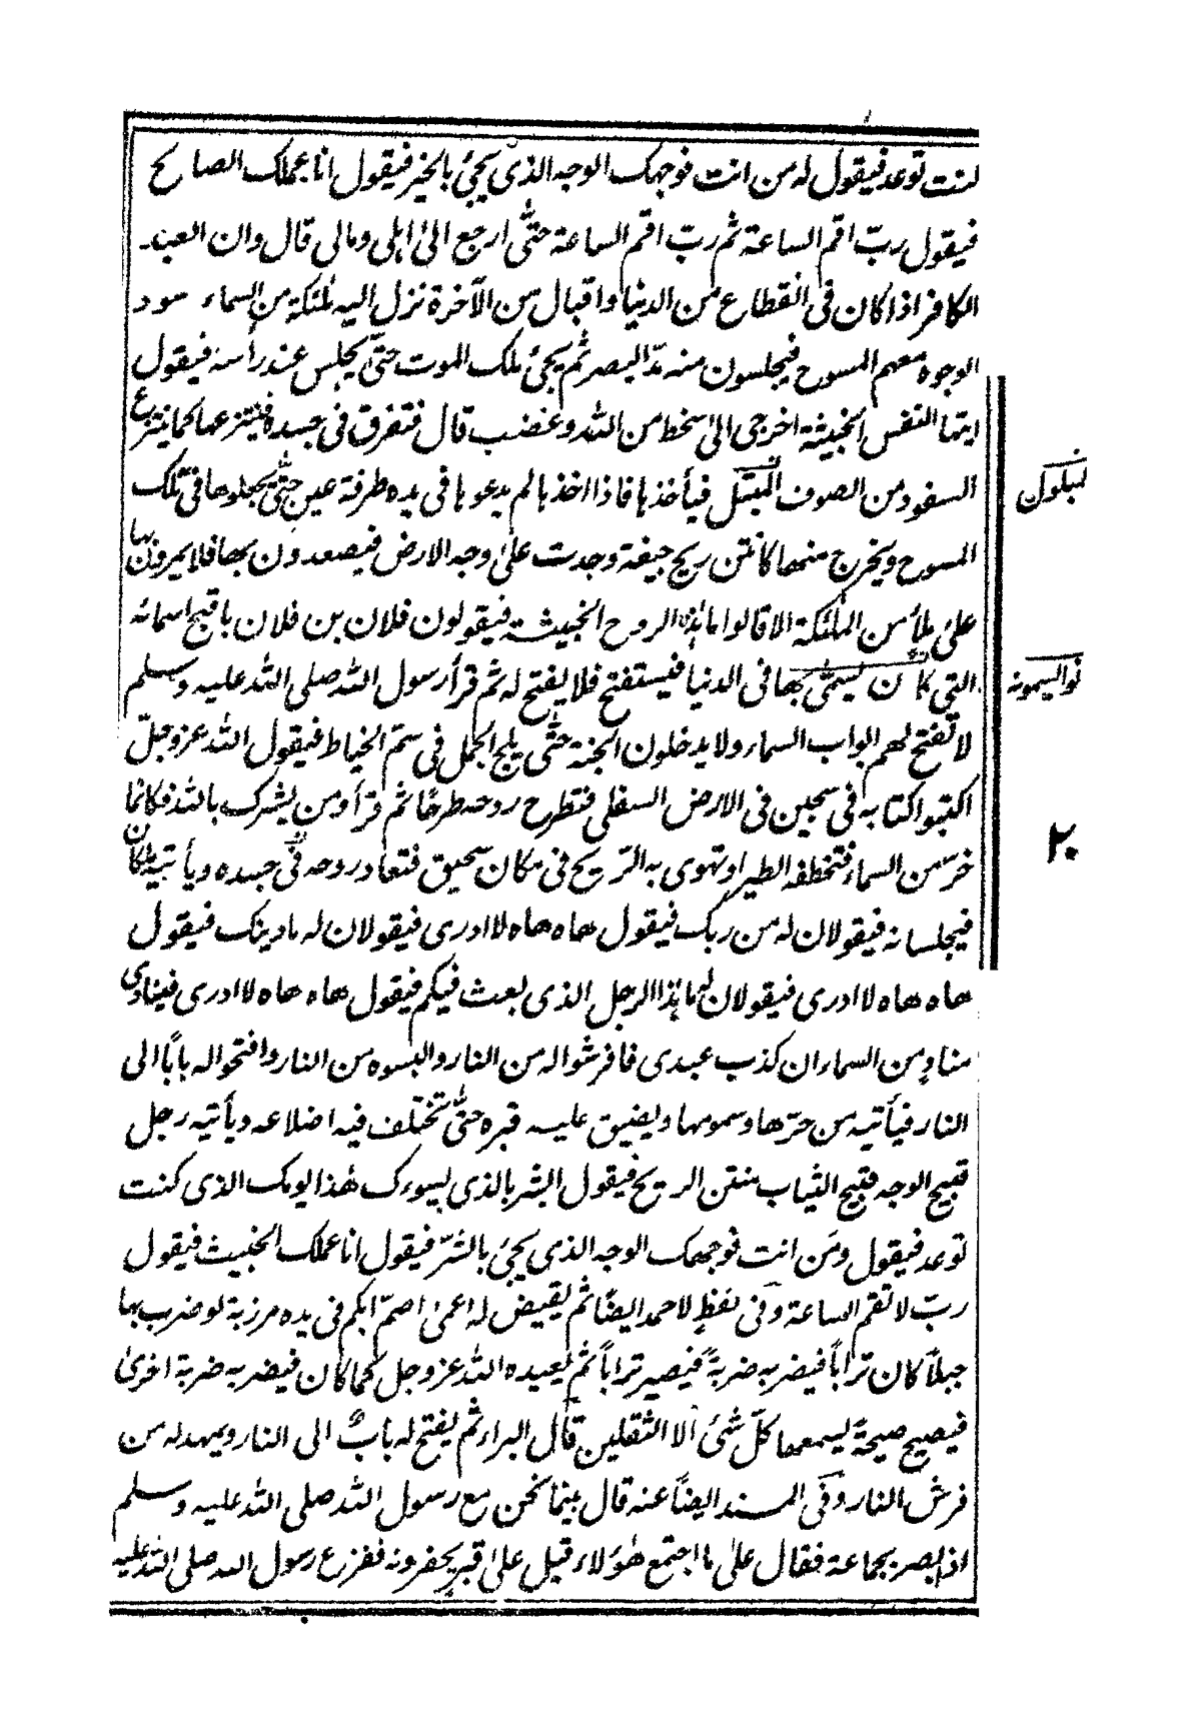 كنت توعد فيقول له من انت فوجهك الوجه الذى يجئ بالخير فيقول انا عملك الصالح
فيقول ربّ اقم الساعة ثم ربّ اقم الساعة حتّى ارجع الى اهلى ومالى قال وان العبد
الكافر اذا كان فى انقطاع من الدنيا واقبال من الآخرة نزل اليه ملئكة من السماء سود
الوجوه معهم المسوح فيجلسون منه مدّ البصر ثم يجئ ملك الموت حتّى يجلس عند رأسه فيقول
ايتها النفس الخبيثة اخرجى الى سخط من الله وغضب قال فتفرق فى جسده فينتزعها كما ينتزع
السفود من الصوف المبتل فيأخذها فاذا اخذها لم يدعوها فى يده طرفة عين حتّى يجعلوها فى تلك
المسوح ويخرج منها كانتن ريح جيفة وجدت على وجه الارض فيصعدون بها فلا يمرون بها
على ملأ من الملئكة الا قالوا ما هذه الروح الخبيثة فيقولون فلان بن فلان باقبح اسمائه
التى كان يسمّى بها فى الدنيا فيستفتح فلا يفتح له ثم قرأ رسول الله صلى الله عليه وسلم
لا تفتح لهم ابواب السماء ولا يدخلون الجنة حتّى يلج الجمل فى سمّ الخياط فيقول الله عزوجلّ
اكتبوا كتابه فى سجين فى الارض السفلى فتطرح روحه طرحًا ثم قرأ ومن يشرك بالله فكانما
خرّ من السماء فتخطفه الطير او تهوى به الرّيح فى مكان سحيق فتعاد روحه فى جسده ويأتيه ملكان
فيجلسانه فيقولان له من ربك فيقول هاه هاه لا ادرى فيقولان له ما دينك فيقول
هاه هاه لا ادرى فيقولان له ما هذا الرجل الذى بعث فيكم فيقول هاه هاه لا ادرى فينادى
منادٍ من السماء ان كذب عبدى فافرشوا له من النار والبسوه من النار وافتحوا له بابًا الى
النار فيأتيه من حرّها وسمومها ويضيق عليه قبره حتّى تختلف فيه اضلاعه ويأتيه رجل
قبيح الوجه قبيح الثياب منتن الريح فيقول ابشر بالذى يسوءك هٰذا يومك الذى كنت
توعد فيقول ومَن انت فوجهك الوجه الذى يجئ بالشرّ فيقول انا عملك الخبيث فيقول
ربّ لا تقم الساعة وفى لفظٍ لاحمد ايضًا ثم يقيض له اعمى اصمّ ابكم فى يده مرزبة لو ضرب بها
جبلًا كان ترابًا فيضربه ضربةً فيصير ترابًا ثم يعيده الله عزوجل كما كان فيضربه ضربة اخرىٰ
فيصيح صيحةً يسمعها كلّ شئ الا الثقلين قال البراء ثم يفتح له بابٌ الى النار ويمهد له من
فرش النار وفى المسند ايضًا عنه قال بينما نحن مع رسول الله صلى الله عليه وسلم
اذ ابصر بجماعة فقال علىٰ ما اجتمع هٰؤلاء قيل علىٰ قبرٍ يحفرونه ففزع رسول الله صلى الله عليه
٢٠